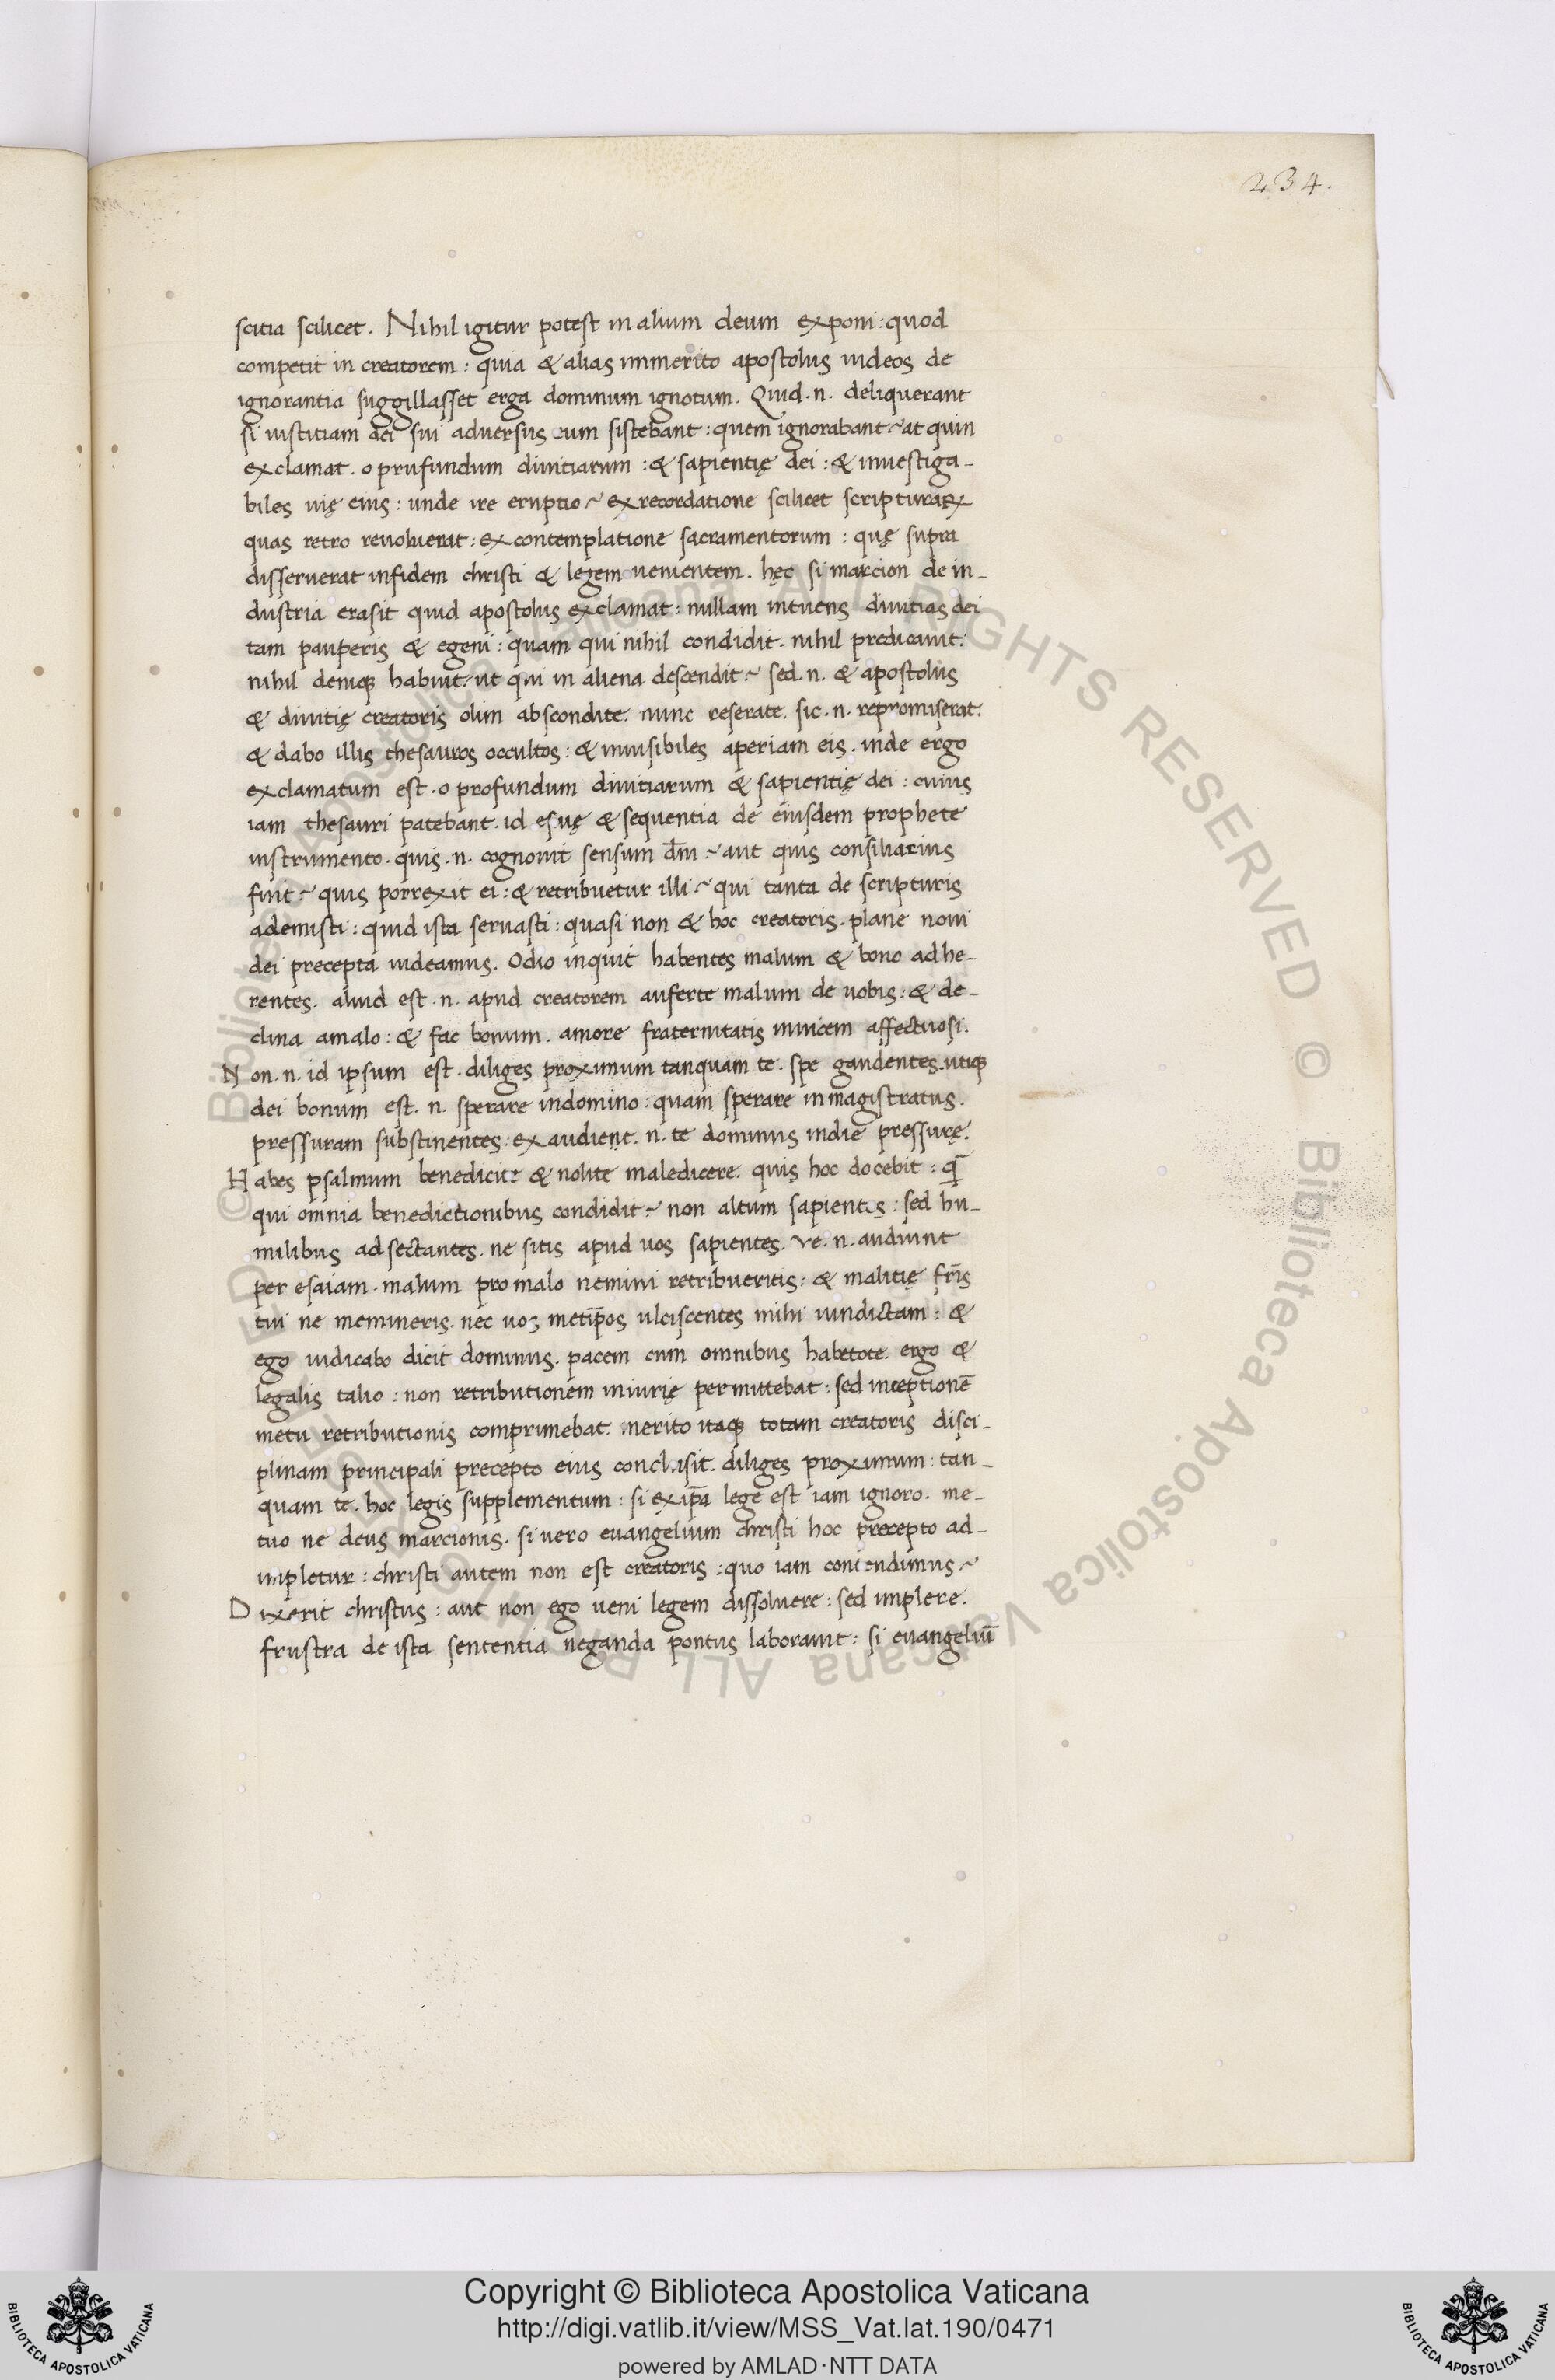 234.
scitia scilicet. Nihil igitur potest in alium deum exponi: quod
competit in creatorem: quia & alias immerito apostolus iudeos de
ignorantia suggillasset erga dominum ignotum. Quid .n. deliquerant
si iustitiam dei sui adversus eum sistebant: quem ignorabant? at quin
exclamat. o prufundum divitiarum: & sapientię dei: & investiga-
biles vię eius: unde ire eruptio? ex recordatione scilicet scripturaꝝ
quas retro revolverat: ex contemplatione sacramentorum: quę supra
disserverat infidem christi & legem venientem. hęc si marcion de in-
dustria erasit quid apostolus exclamat: nullam intuens divitias dei
tam pauperis & egeni: quam qui nihil condidit. nihil predicavit:
nihil deniqꝫ habuit. ut qui in aliena descendit? sed .n. & apostolus
& divitię creatoris olim abscondite. nunc reserate. sic .n. repromiserat.
& dabo illis thesauros occultos: & invisibiles aperiam eis. inde ergo
exclamatum est. o profundum divitiarum & sapientię dei: cuius
iam thesauri patebant. id esvę & sequentia de eiusdem prophete
instrumento. quis .n. cognovit sensum dm̄? aut quis consiliarius
fuit? quis porrexit ei: & retribuetur illi? qui tanta de scripturis
ademisti: quid ista servasti: quasi non & hoc creatoris. plane novi
dei precepta videamus. Odio inquit habentes malum & bono adhe-
rentes. aliud est .n. apud creatorem auferte malum de vobis: & de-
clina amalo: & fac bonum. amore fraternitatis invicem affectuosi.
Non .n. id ipsum est. diliges proximum tanquam te. spe gaudentes utiqꝫ
dei bonum est .n. sperare indomino: quam sperare in magistratus.
pressuram substinentes: exaudienṭ .n. te dominus indie pressurę.
Habes psalmum benedicite & nolite maledicere. quis hoc docebit: q̄
qui omnia benedictionibus condidit? non altum sapientes: sed hu-
milibus adsectantes. ne sitis apud vos sapientes. ve .n. audiunt
per esaiam. malum pro malo nemini retribueritis: & malitię fr̄is
tui ne memineris. nec vos metip̄os ulciscentes mihi vindictam: &
ego iudicabo dicit dominus. pacem cum omnibus habetote. ergo &
legalis talio: non retributionem iniurię permittebat: sed inceptionē
metu retributionis comprimebat. merito itaqꝫ totam creatoris disci-
plinam principali precepto eius conclusit. diliges proximum: tan-
quam te. hoc legis supplementum: si exip̄a lege est iam ignoro. me-
tuo ne deus marcionis. si vero evangelium christi hoc precepto ad-
impletur: christi autem non est creatoris: quo iam contendimus?
Dixerit christus: aut non ego veni legem dissolvere: sed implere.
frustra de ista sententia neganda pontus laboravit: si evangeliū
© Biblioteca Apostolica Vaticana ALL RIGHTS RESERVED
Copyright © Biblioteca Apostolica Vaticana
http://digi.vatlib.it/view/MSS_Vat.lat.190/0471
powered by AMLAD·NTT DATA
BIBLIOTECA APOSTOLICA VATICANA
BIBLIOTECA APOSTOLICA VATICANA